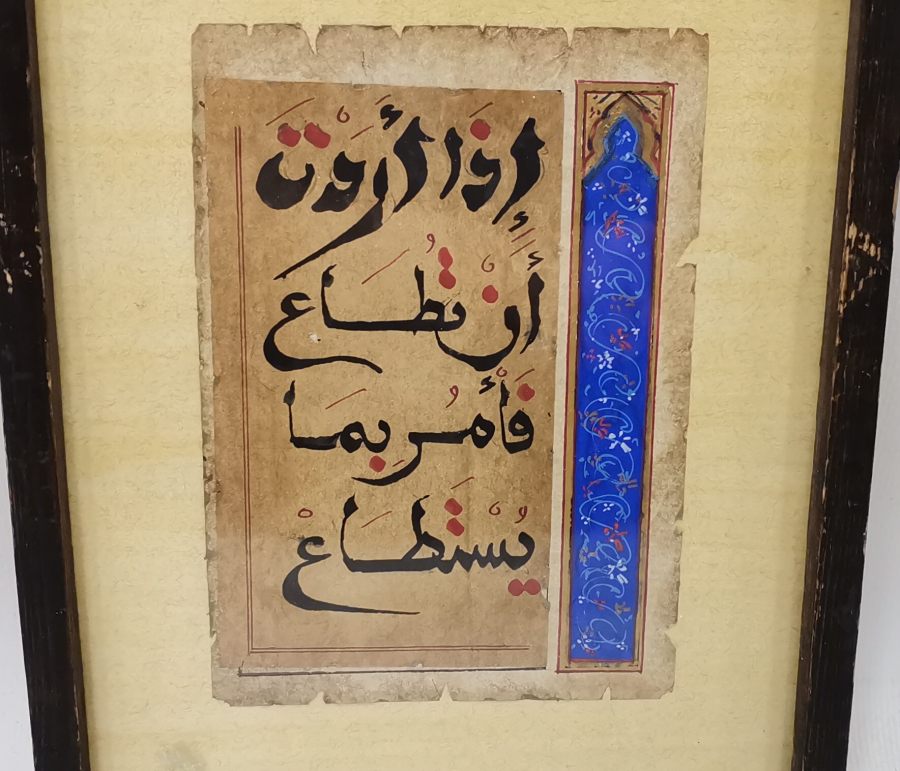 إِذَا أَرَدْتَ
أَنْ تُطَاعَ
فَأْمُرْ بِمَا
يُسْتَطَاعْ